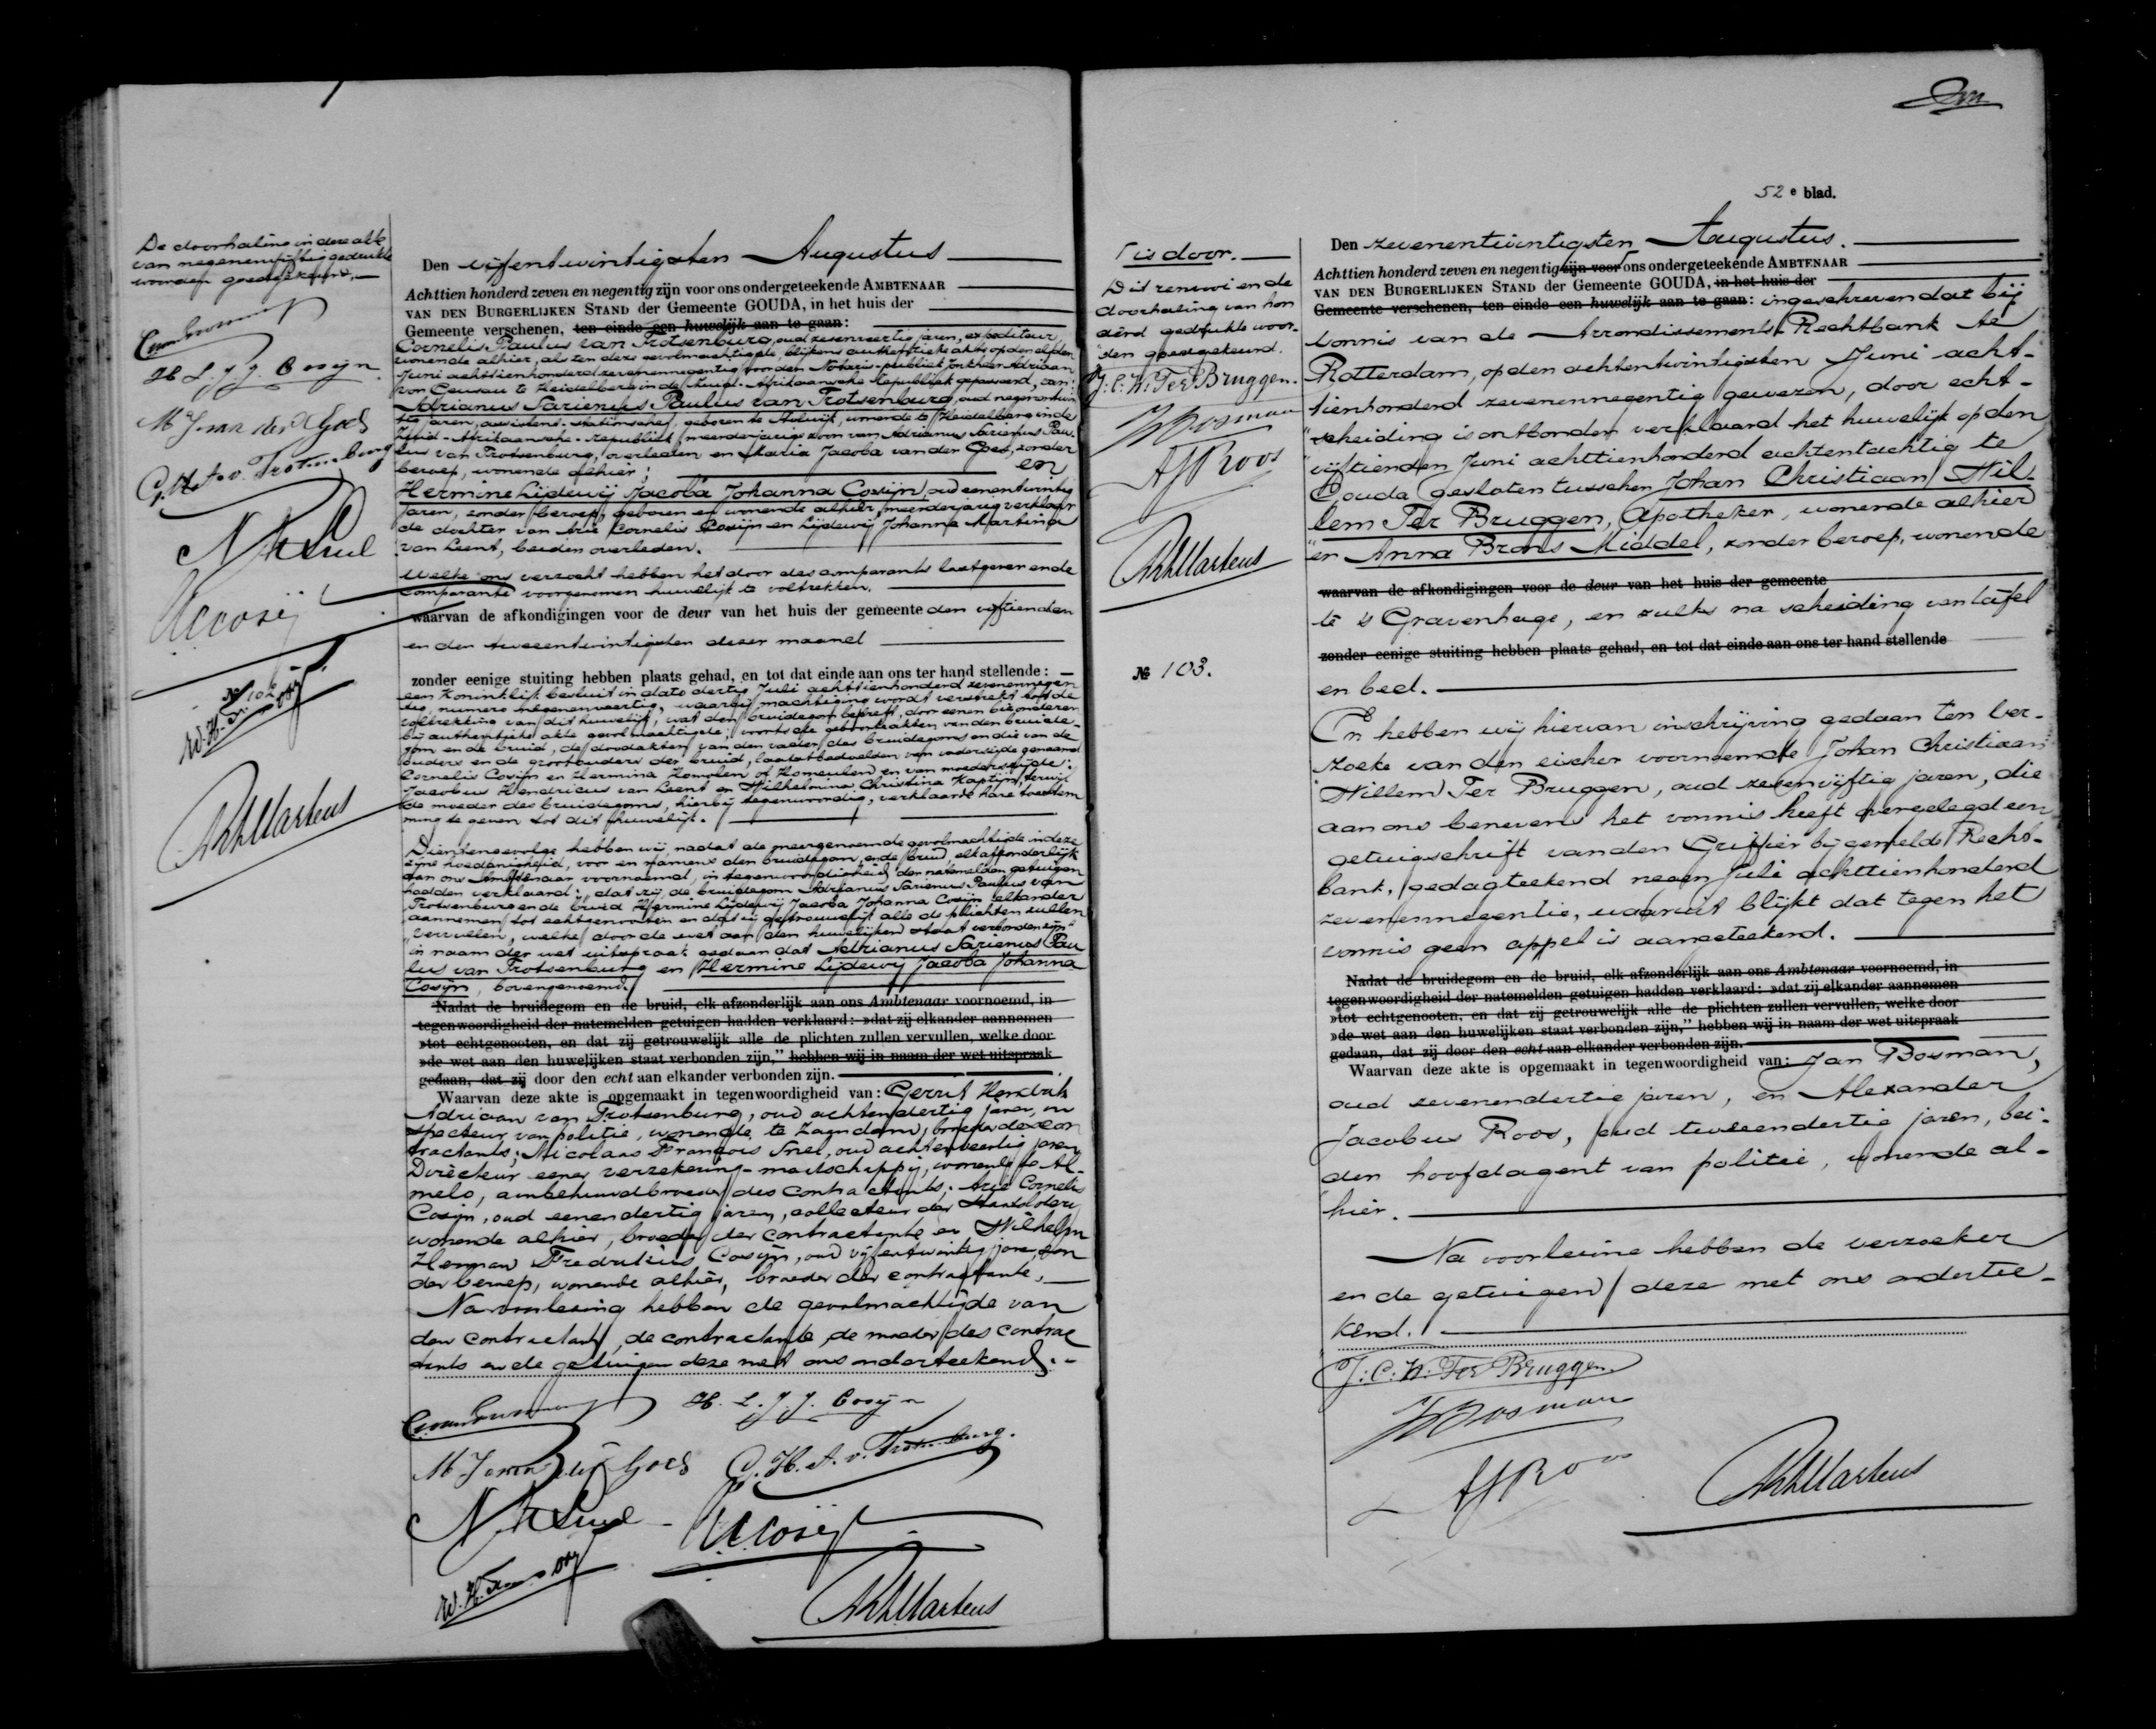 De doorhaling in deze akte
van negenenvijftig gedrukte
woorden goedgekeurd.
H. L. J. J. Cosijn
M J van der Goes
G. H. A. v. Trotsenburg
N F Snel
A C Cosijn
№ 102
Den vijfentwintigsten Augustus
Achttien honderd zeven en negentig zijn voor ons ondergeteekende AMBTENAAR
VAN DEN BURGERLIJKEN STAND der Gemeente GOUDA, in het huis der
Gemeente verschenen, ten einde een huwelijk aan te gaan:
Cornelis Paulus van Trotsenburg, oud zesenveertig jaren, expediteur,
wonende alhier, als ten deze gevolmachtigde, blijkens authentieke akte op den elfden
Juni achttienhonderd zevenennegentig voor den Notaris-publiek Jonkheer Adriaan
te Heidelberg in de Zuid-Afrikaansche Republiek gepasseerd, van:
Adrianus Sarienus Paulus van Trotsenburg, oud negenentwin
tig jaren, assistent-stationschef, geboren te wonende te Heidelberg in de
Zuid-Afrikaansche-Republiek, meerderjarige zoon van Adrianus Sarienus Pau-
lus van Trotsenburg, overleden en Maria Jacoba van der Goes, zonder
beroep, wonende alhier; en
Hermine Lijdewij Jacoba Johanna Cosijn, oud eenentwintig
jaren, zonder beroep, geboren en wonende alhier, meerderjarig verklaar
de dochter van Arie Cornelis Cosijn en Lijdewij Johanna Martina
van Leent, beiden overleden.
Welke ons verzocht hebben het door des comparants lastgever en de
comparante voorgenomen huwelijk te voltrekken.
waarvan de afkondigingen voor de deur van het huis der gemeente den vijftienden
en den tweeentwintigsten dezer maand
zonder eenige stuiting hebben plaats gehad, en tot dat einde aan ons ter hand stellende:
een Koninklijk besluit in dato dertig Juli achttienhonderd zevenennegen-
tig, numero waarbij machtiging wordt verstrekt tot de
voltrekking van dit huwelijk, wat den bruidegom betreft, door eenen bijzonderen
bij authentieke akte gevolmachtigde; voorts de geboorteakten van den bruide-
gom en de bruid, de doodakten van den vader des bruidegoms en die van de
ouders en de grootouders der bruid, laatstbedoelden van vaderszijde genaamd
Cornelis Cosijn en Hermina Homolen of Homeulen en van moederszijde:
Jacobus Hendricus van Leent en Wilhelmina Christina Kaptijn, terwijl
de moeder des bruidegoms, hierbij tegenwoordig, verklaarde hare toestem
ming te geven tot dit huwelijk.
Dientengevolge hebben wij, nadat de meergenoemde gevolmachtigde in deze
zijne hoedanigheid, voor en namens den bruidegom, en de bruid, elk afzonderlijk
aan ons Ambtenaar voornoemd, in tegenwoordigheid der natemelden getuigen
hadden verklaard: dat zij, de bruidegom Adrianus Sarienus Paulus van
Trotsenburg en de bruid Hermine Lijdewij Jacoba Johanna Cosijn elkander
aannemen tot echtgenooten en dat zij getrouwelijk alle de plichten zullen
"vervullen, welke door de wet aan den huwelijken staat verbonden zijn"
in naam der wet uitspraak gedaan dat Adrianus Sarienus Pau
lus van Trotsenburg en Hermine Lijdewij Jacoba Johanna
Cosijn, bovengenoemd
Nadat de bruidegom en de bruid, elk afzonderlijk aan ons Ambtenaar voornoemd, in
tegenwoordigheid der natemelden getuigen hadden verklaard: »dat zij elkander aannemen
»tot echtgenooten, en dat zij getrouwelijk alle de plichten zullen vervullen, welke door
»de wet aan den huwelijken staat verbonden zijn," hebben wij in naam der wet uitspraak
gedaan, dat zij door den echt aan elkander verbonden zijn.
Waarvan deze akte is opgemaakt in tegenwoordigheid van: Gerrit Hendrik
Adriaan van Trotsenburg, oud achtendertig jaren, in
specteur van politie, wonende te Zaandam, broeder des con
tractants; Nicolaas François Snel, oud achtenveertig jaren
Directeur eener verzekering-maatschappij, wonende te Al-
melo, aanbehuwdbroeder des contractants; Arie Cornelis
Cosijn, oud eenendertig jaren, collecteur der Staatsloterij
wonende alhier, broeder der contractante en Wilhelm
Herman Fredrikus Cosijn, oud vijfentwintig jaren, zon
der beroep, wonende alhier, broeder der contractante.
Na voorlezing hebben de gevolmachtigde van
den contractant, de contractante, de moeder des contrac
tants en de getuigen deze met ons onderteekend.
H. L. J. J. Cosijn
M J van der Goes G. H. A. v. Trotsenburg.
N F Snel A C Cosijn
52e blad.
Γ is door.
Dit renvooi en de
doorhaling van hon
derd gedrukte woor-
den goedgekeurd.
J. C. W. Ter Bruggen.
J Bosman
A J Roos
№ 103.
Den zevenentwintigsten Augustus.
Achttien honderd zeven en negentig zijn voor Γ ons ondergeteekende AMBTENAAR
VAN DEN BURGERLIJKEN STAND der Gemeente GOUDA, in het huis der
Gemeente verschenen, ten einde een huwelijk aan te gaan: ingeschreven dat bij
vonnis van de Arrondissements-Rechtbank te
Rotterdam, op den achtentwintigsten Juni acht-
tienhonderd zevenennegentig gewezen, door echt-
"scheiding is ontbonden verklaard het huwelijk op den
"vijftienden Juni achttienhonderd achtentachtig te
Gouda gesloten tusschen Johan Christiaan Wil-
lem Ter Bruggen, Apotheker, wonende alhier
"en Anna Brons Middel, zonder beroep, wonende
waarvan de afkondigingen voor de deur van het huis der gemeente
te 's Gravenhage, en zulks na scheiding van tafel
zonder eenige stuiting hebben plaats gehad, en tot dat einde aan ons ter hand stellende
en bed.
En hebben wij hiervan inschrijving gedaan ten ver-
zoeke van den eischer voornoemde Johan Christiaan
Willem Ter Bruggen, oud zevenvijftig jaren, die
aan ons benevens het vonnis heeft overgelegd een
getuigschrift van den Griffier bij gemelde Recht-
bank, gedagteekend negen Juli achttienhonderd
zevenennegentig, waaruit blijkt dat tegen het
vonnis geen appel is aangeteekend.
Nadat de bruidegom en de bruid, elk afzonderlijk aan ons Ambtenaar voornoemd, in
tegenwoordigheid der natemelden getuigen hadden verklaard: »dat zij elkander aannemen
»tot echtgenooten, en dat zij getrouwelijk alle de plichten zullen vervullen, welke door
»de wet aan den huwelijken staat verbonden zijn," hebben wij in naam der wet uitspraak
gedaan, dat zij door den echt aan elkander verbonden zijn.
Waarvan deze akte is opgemaakt in tegenwoordigheid van: Jan Bosman,
oud zevenendertig jaren, en Alexander
Jacobus Roos, oud tweeendertig jaren, bei-
den hoofdagent van politie, wonende al-
hier.
Na voorlezing hebben de verzoeker
en de getuigen deze met ons ondertee-
kend.
J. C. W. Ter Bruggen
J Bosman
A J Roos